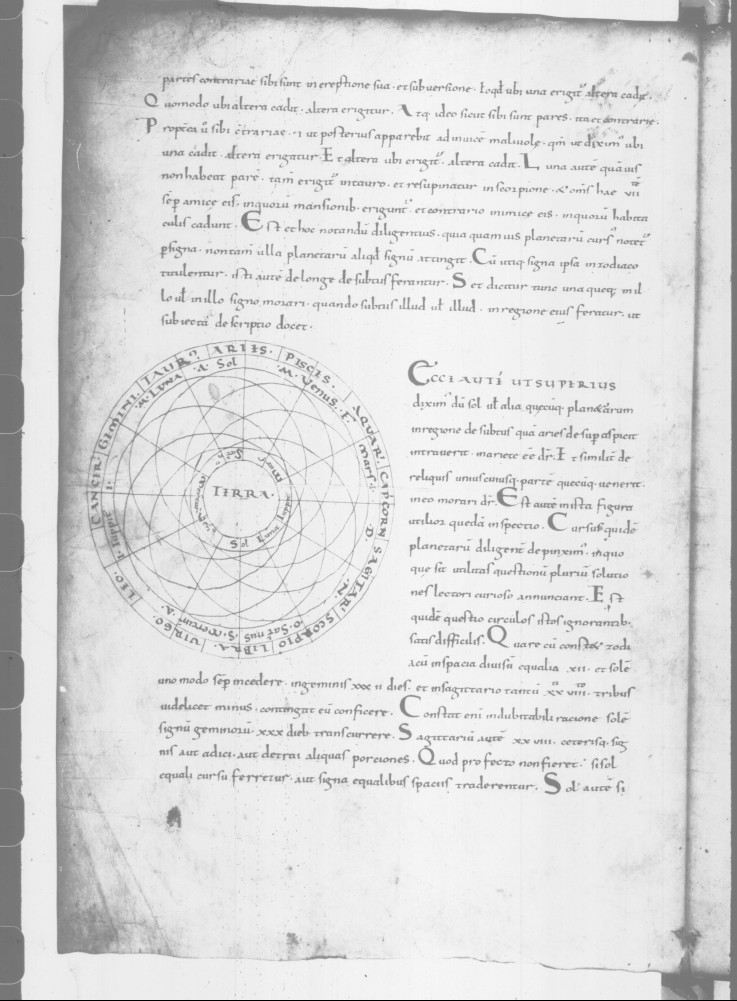 partes contrariae sibi sunt in ereptione sua · et subversione · ł oqđ ubi una erigit᷒ altera cadit.
Quomodo ubi altera cadit · altera erigitur. Atq; ideo sicut sibi sunt pares · ita et contrarie.
Proptea ū sibi c̄trariae · i ut posterius apparebit ad inuicē maliuole · qm̄ ut dixim᷒ ubi
una cadit · altera erigatur. Et altera ubi erigit᷒ · altera cadit. Luna autē quāuis
non habeat parē · tam̄ erigit᷒ in tauro · et resupinatur in scorpione · & om̄s hae vii
sēp amice eis · in quorū mansionib· erigunt᷒ · et contrario inimice eis · in quorū habita
culis cadunt. Est et hoc notandū diligentius, quia quamuis planetarū curs᷒ notet᷒
p signa · non tam̄ ulla planetarū aliqđ signū attingit. Cū utiq; signa ipsa in zodiaco
titulentur · isti autē de longe de subtus ferantur. Set dicitur tunc una queq; in il
lo uł in illo signo morari · quando subtus illud uł illud · in regione eius feratur · ut
subiecta descriptio docet.
ARIES. PISCIS. AQUAR᷒. CAPCORN SAGITAR᷒. SCORPIO LIBRA. VIRGO. LEO. CANCER᷒. GEMINI. TAUR᷒.
A. Sol
M. Venus. F.
Mars.
D.
N.
O. Sat᷒nus. S. Mercur᷒. A.
I. Iuppit᷒
M. LUNA
TERRA.
Sol
ECCE AUTĒ UT SUPERIUS
dixim᷒ dū sol uł alia quecūq; planetarum
in regione de subtus quā aries desup aspicit
intrauerit · in ariete eē dr̄. Et similit̄ de
reliquis uniuscuiusq; partē quecūq; uenerit ·
in eo morari dr̄. Est autē in ista figura
utilior quedā inspectio. Cursus quidē
planetarū diligent̄ depinxim᷒ · in quo
que sit utilitas questionū pluriū solutio
nes lectori curioso annunciant. Est
quidē questio circulos istos ignorantib·
satis difficilis. Quare cū constet zodi
acū in spacia diuisū equalia xii · et solē
uno modo sēp incedere · in geminis xxx ii dies · et in sagittario tantū xx viiii · tribus
uidelicet minus · contingat eū conficere. Constat enī indubitabili racione solē
signū geminorū · xxx dieb· transcurrere. Sagittariū autē xx viii · ceterisq; sig
nis aut adici · aut detrai aliquas porciones. Quod profecto non fieret · si sol
equali cursu ferretur · aut signa equalibus spaciis traderentur. Sol autē si